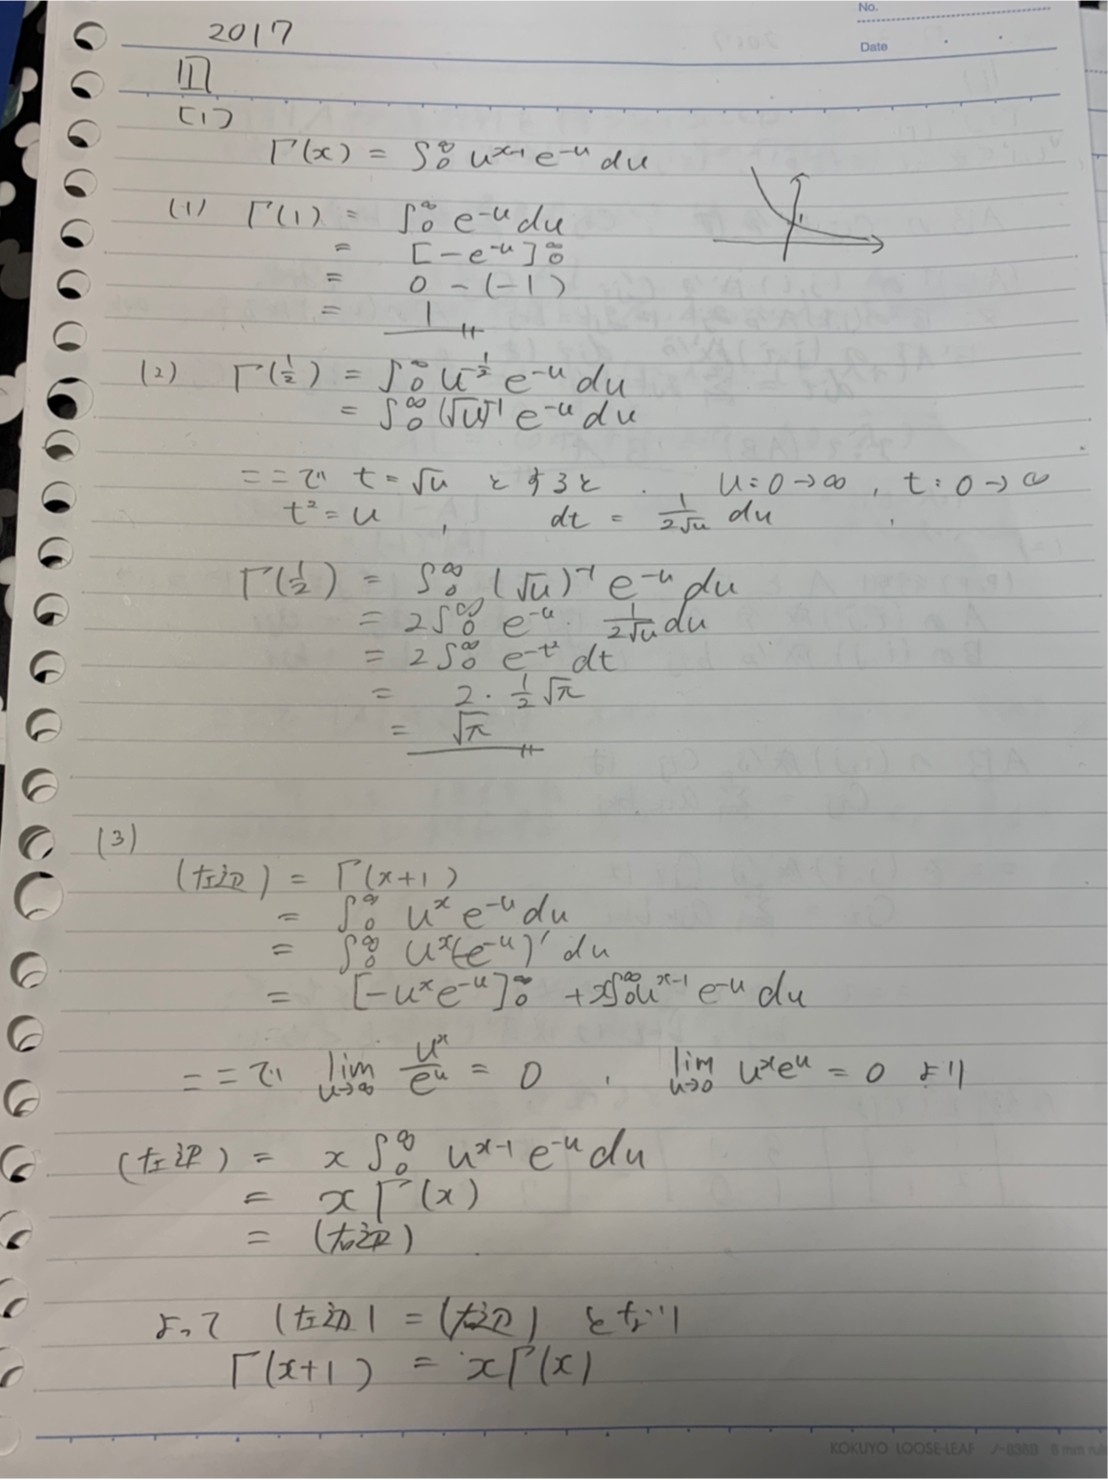 No.
2017
Date
[1]
(1)
Γ(x) = ∫₀^∞ u^{x-1} e^{-u} du
(1) Γ(1) = ∫₀^∞ e^{-u} du
= [-e^{-u}]₀^∞
= 0 - (-1)
= 1
(2) Γ(1/2) = ∫₀^∞ u^{-1/2} e^{-u} du
= ∫₀^∞ (√u)^{-1} e^{-u} du
ここで t = √u とすると . u : 0→∞ , t : 0→∞
t² = u , dt = 1/(2√u) du
Γ(1/2) = ∫₀^∞ (√u)^{-1} e^{-u} du
= 2∫₀^∞ e^{-u} · 1/(2√u) du
= 2∫₀^∞ e^{-t²} dt
= 2 · 1/2 √π
= √π
(3)
(左辺) = Γ(x+1)
= ∫₀^∞ u^x e^{-u} du
= ∫₀^∞ u^x(-e^{-u})' du
= [-u^x e^{-u}]₀^∞ + x∫₀^∞ u^{x-1} e^{-u} du
ここで lim_{u→∞} u^x/e^u = 0 , lim_{u→0} u^x e^u = 0 より
(左辺) = x ∫₀^∞ u^{x-1} e^{-u} du
= x Γ(x)
= (右辺)
よって (左辺) = (右辺) となり
Γ(x+1) = xΓ(x)
KOKUYO LOOSE-LEAF ノ-836B 8 mm rule